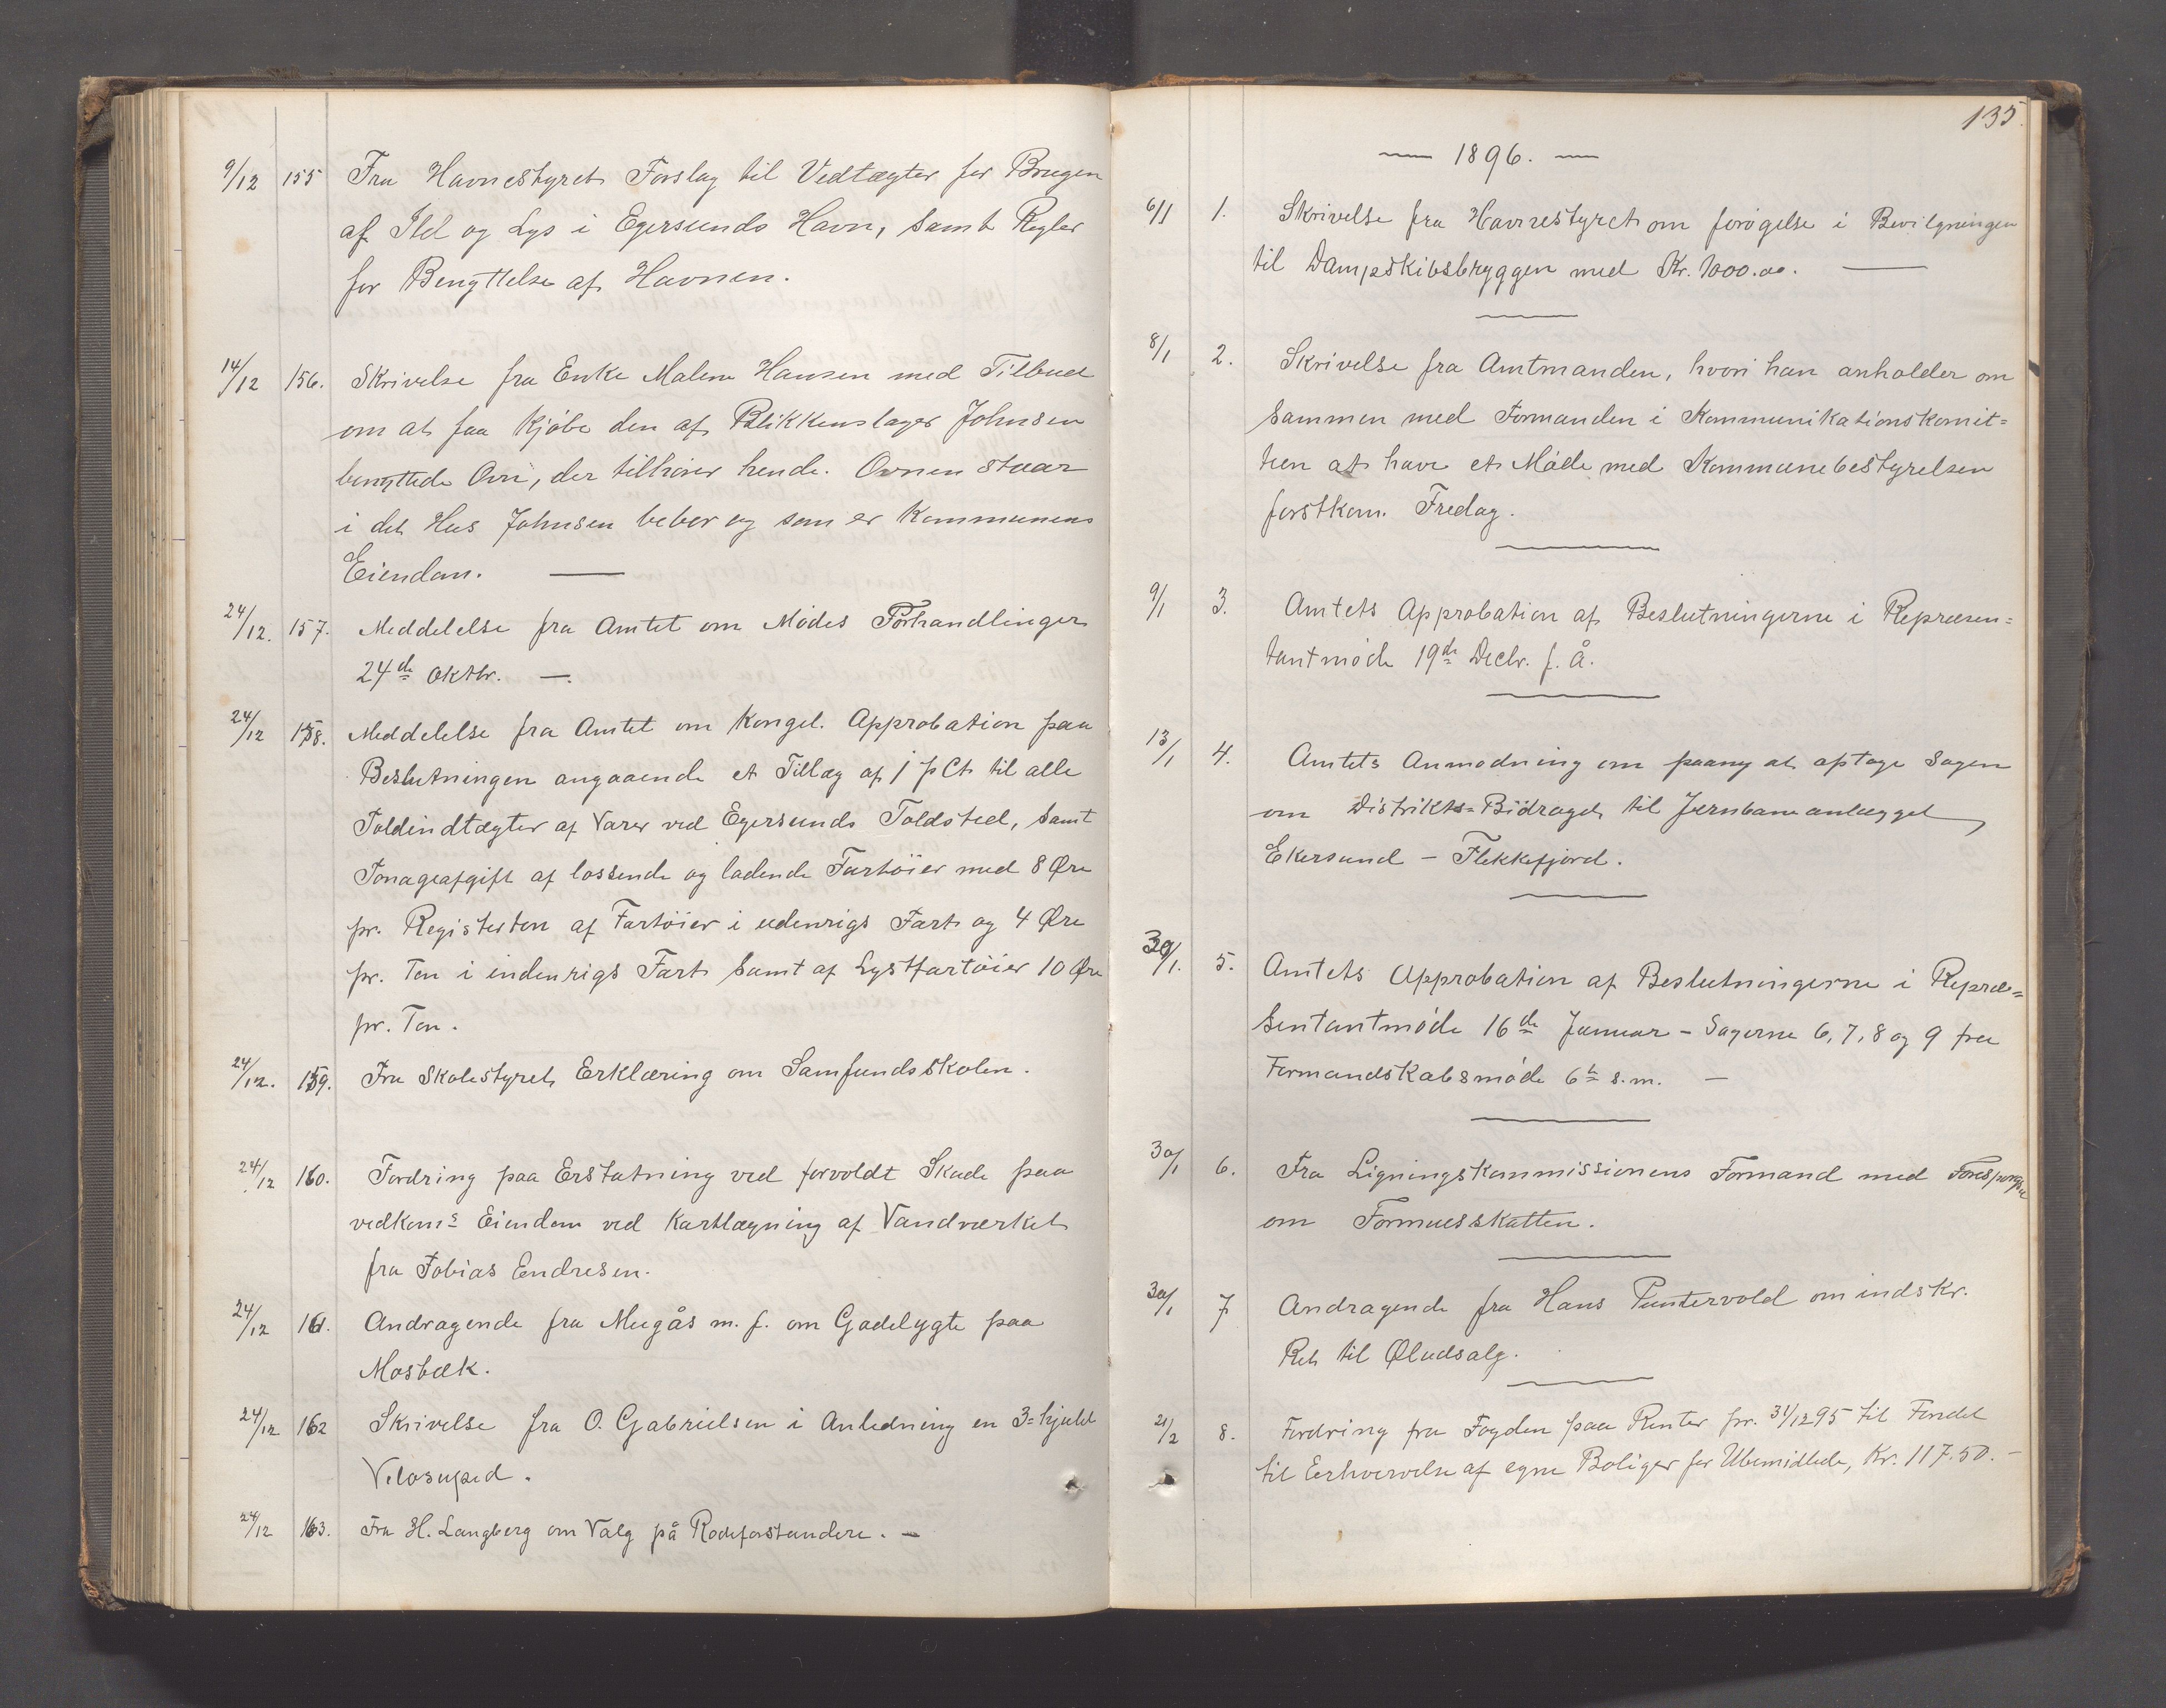 9/12 155 Fra Havnestyret Forslag til Vedtægter for Brugen
af Ild og Lys i Egersunds Havn, samt Regler
for Benyttelse af Havnen.
14/12 156. Skrivelse fra Enke Malene Hansen med Tilbud
om at faa Kjøbe den af Blikkenslager Johnsen
benyttede Ovn, der tilhører hende. Ovnen staar
i det Hus Johnsen bebor og som er Kommunens
Eiendom. —
24/12. 157. Meddelelse fra Amtet om Mødes Forhandlinger
24de Oktbr. —.
24/12 158. Meddelelse fra Amtet om Kongel. Approbation paa
Beslutningen angaaende et Tillæg af 1 pCt til alle
Toldindtægter af Varer ved Egersunds Toldsted, samt
Tonageafgift af lossende og ladende Fartøier med 8 Øre
pr. Registerton af Fartøier i udenrigs Fart og 4 Øre
pr. Ton i indenrigs Fart samt af Lystfartøier 10 Øre
pr. Ton.
24/12. 159. Fra Skolestyret Erklæring om Samfundsskolen.
24/12 160. Fordring paa Erstatning ved forvoldt Skade paa
vedkoms Eiendom ved Kartlægning af Vandværket
fra Tobias Endresen.
24/12 161. Andragende fra Mugås m. f. om Gadelygte paa
Mosbæk.
24/12 162 Skrivelse fra O. Gabrielsen i Anledning en 3=hjuld
Velosuped.
24/12 163. Fra H. Langberg om Valg på Rodeforstandere. —
135.
— 1896. —
6/1 1. Skrivelse fra Havnestyret om forøgelse i Bevilgningen
til Dampskibsbryggen med Kr. 1000.00. —
8/1 2. Skrivelse fra Amtmanden, hvori han anholder om
sammen med Formanden i Kommunikationskomit=
teen at have et Møde med Kommunebestyrelsen
førstkom. Fredag.
9/1 3. Amtets Approbation af Beslutningerne i Repræsen=
tantmøde 19de Decbr. f. Å.
13/1 4. Amtets Anmodning om paany at optage Sagen
om Distrikts=Bidraget til Jernbaneanlægget
Ekersund — Flekkefjord.
30/1. 5. Amtets Approbation af Beslutningerne i Repræ=
sentantmøde 16de Januar — Sagerne 6, 7, 8 og 9 fra
Formandskabsmøde 6te s.m. —
30/1 6. Fra Ligningskommissionens Formand med Forespørgsel
om Formuesskatten.
30/1 7 Andragende fra Hans Puntervold om indskr.
Ret til Øludsalg.
21/2 8. Fordring fra Fogden paa Renter pr. 31/12 95 til Fondet
til Erhvervelse af egne Boliger for Ubemidlede, Kr. 117.50. —